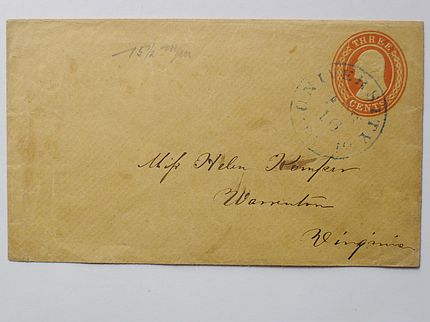 15½ mm
THREE
CENTS
UNIVERSITY
16
Miss Helen Kemper
Warrenton
Virginia